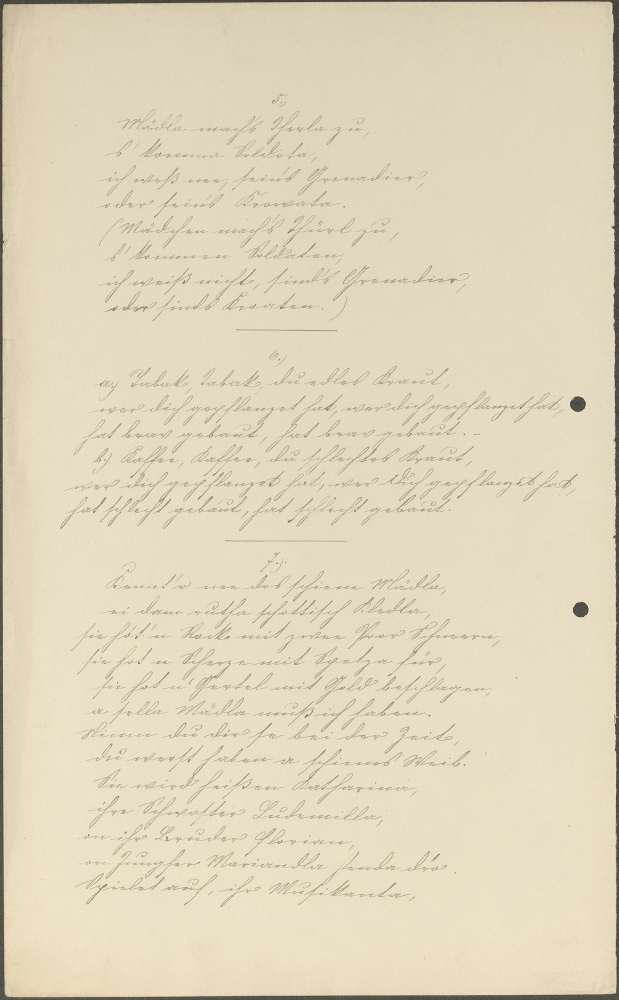 5.)
Mädla mach's Therla zu,
s' komma Soldota,
ich weß nee, sein's Grenadier,
oder sein's Krowata.
(Mädchen mach's Thürl zu,
s' kommen Soldaten,
ich weiß nicht, sind's Grenadier,
oder sinds Kroaten.)
6.)
a) Tabak, Tabak, du edles Kraut,
wer dich gepflanzet hat, wer dich gepflanzet hat,
hat brav gebaut, hat brav gebaut. -
b) Kaffee, Kaffee, du schlechtes Kraut,
wer dich gepflanzet hat, wer dich gepflanzet hat,
hat schlecht gebaut, hat schlecht gebaut.
7.)
Kennt'r nee das schiene Mädla,
ei dam rutha schottisch Kledla,
sie hot 'n Rock mit zwee Poor Schneern,
sie hot n Scherze mit Spetza für,
sie hot n' Gertel mit Gold beschlagen,
a sella Mädla muß ich haben.
Nimm du dir se bei der Zeit,
du werst haben a schienes Weib.
Sie wird heißen Katharina,
ihre Schwaster Ludemilla,
on ihr Bruder Florian,
on Jungher Mariandla
Spielet auf, ihr Musikanta,